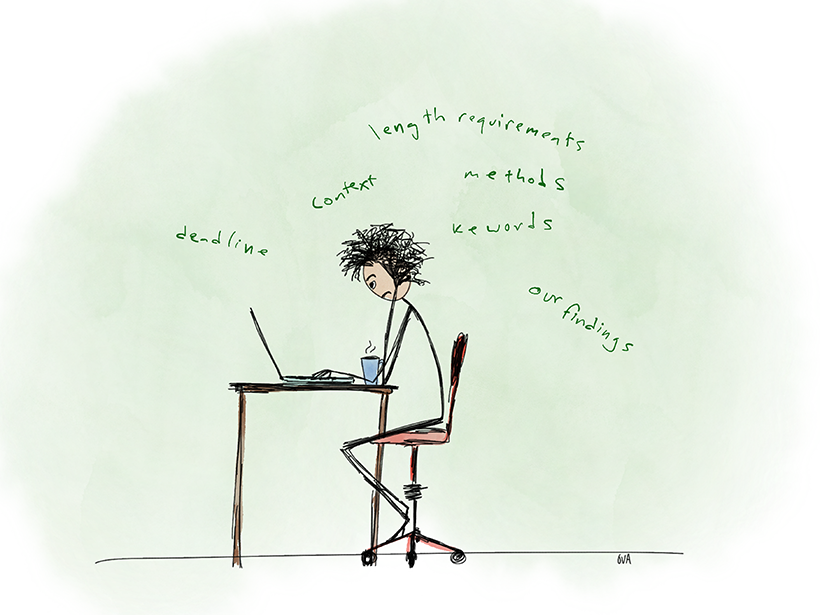 length requirements
context
methods
deadline
kewords
our findings
GVA